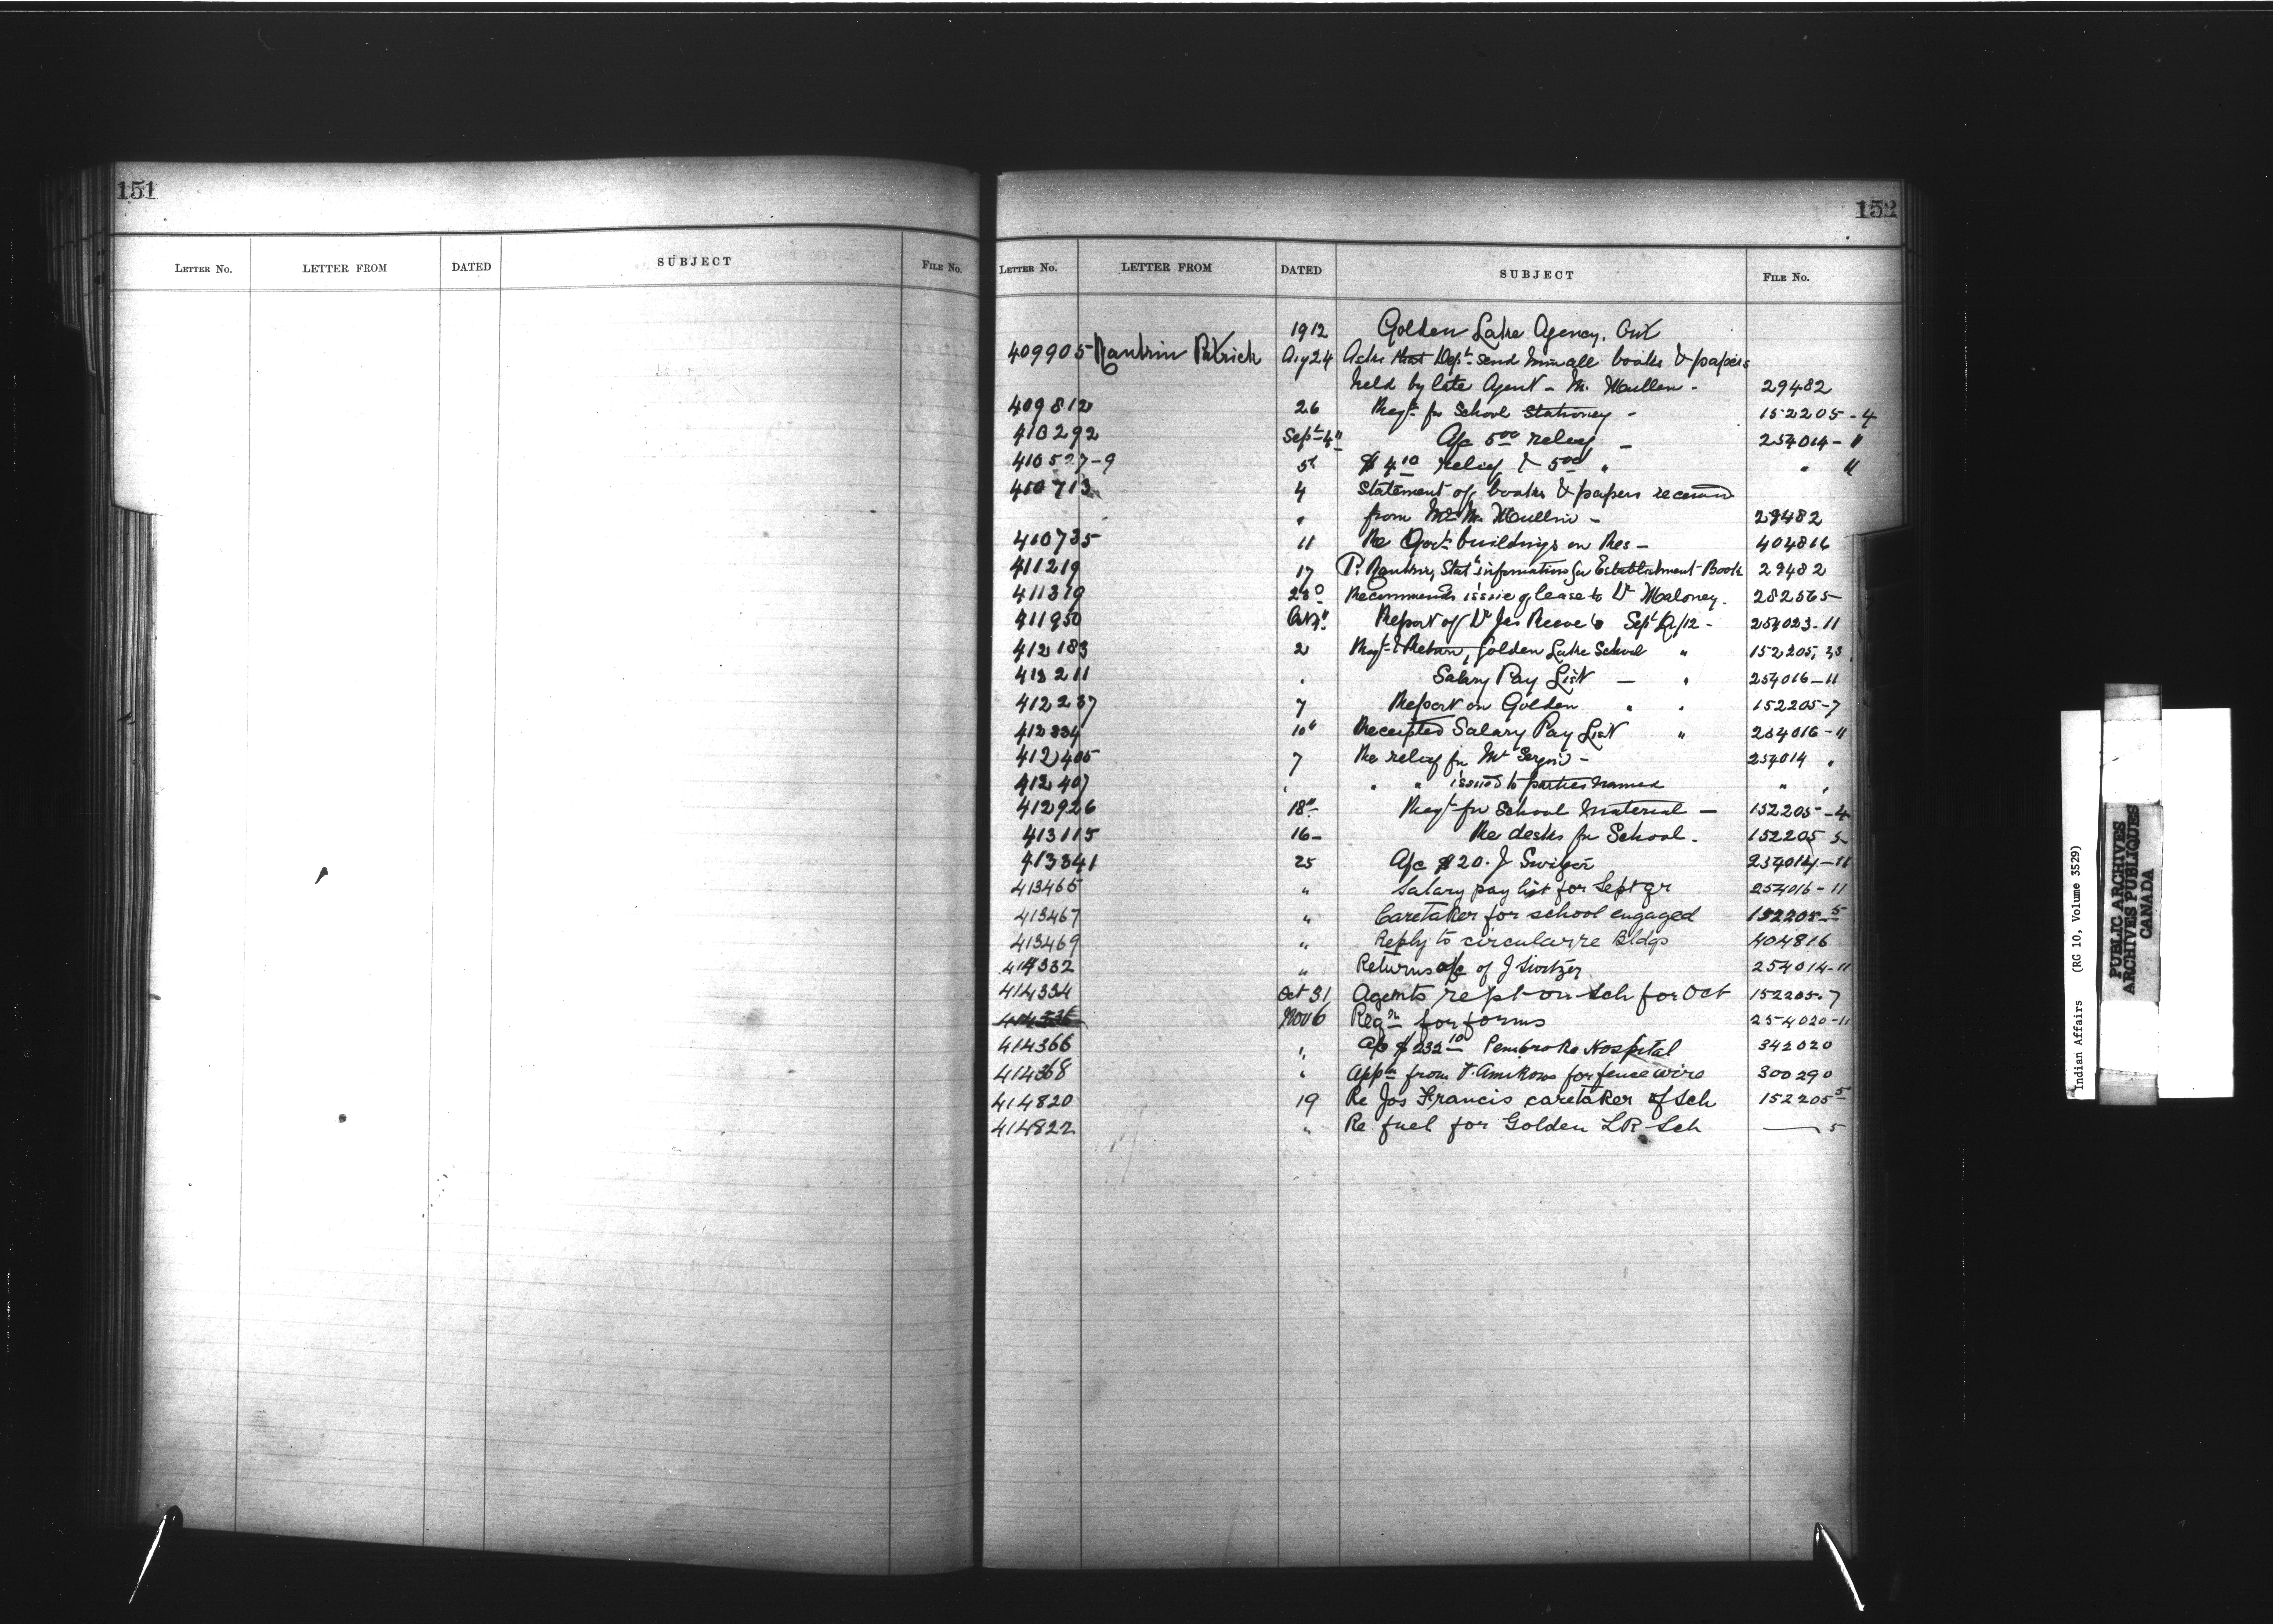 151
LETTER No. LETTER FROM DATED SUBJECT FILE No.
152
LETTER No. LETTER FROM DATED SUBJECT FILE No.
1912 Golden Lake Agency, Ont
409905 Patrick Aug 24 Asks that Dept send him all books & papers
held by late Agent - Mc Mullen - 29482
409812 26 Reqt for School Stationery - 152205-4
410292 Sept 4" A/c 5.00 relief - 254014-11
410527-9 5th $4.10 relief & 5.00 " " 11
410713 4 Statement of books & papers received
" from Mr. Mc Mullin - 29482
410735 11 Re Govt buildings on Res - 404816
411219 17 P. Stats information for Establishment Book 29482
411319 Recommends issue of lease to Dr Maloney. 282565
411950 Oct Report of Dr Jas Reeve's Sept Qr/12 - 254023-11
412183 2 Reqt & Return, Golden Lake School " 152205,
412211 " Salary Pay List - " 254016-11
412237 7 Report on Golden " " 152205-7
412334 10" Receipted Salary Pay List " 254016-11
412405 7 Re relief for Mr 254014 "
412407 " " " issued to parties named " "
412926 18" Reqt for School Material - 152205-4
413115 16- Re desks for School. 152205
413341 25 A/c $20. J 254014-11
413465 " Salary pay list for Sept qr 254016-11
413467 " Caretaker for school engaged 152205-5
413469 " Reply to circular re Bldgs 404816
414332 " Returns a/c of J 254014-11
414334 Oct 31 Agents rept on Sch for Oct 152205-7
Nov 6 Reqn for forms 254020-11
414366 " A/c $232.10 Pembroke Hospital 342020
414368 " Appn from for fence wire 300290
414820 19 Re Jos Francis caretaker of Sch 152205-5
414822 " Re fuel for Golden LR Sch — 5
Indian Affairs (RG 10, Volume 3529)
PUBLIC ARCHIVES
ARCHIVES PUBLIQUES
CANADA